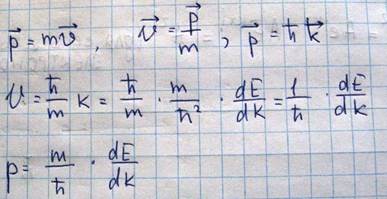 p⃗ = mv⃗ , v⃗ = p⃗/m ; p⃗ = ħk⃗
v = ħ/m k = ħ/m · m/ħ² · dE/dk = 1/ħ · dE/dk
p = m/ħ · dE/dk